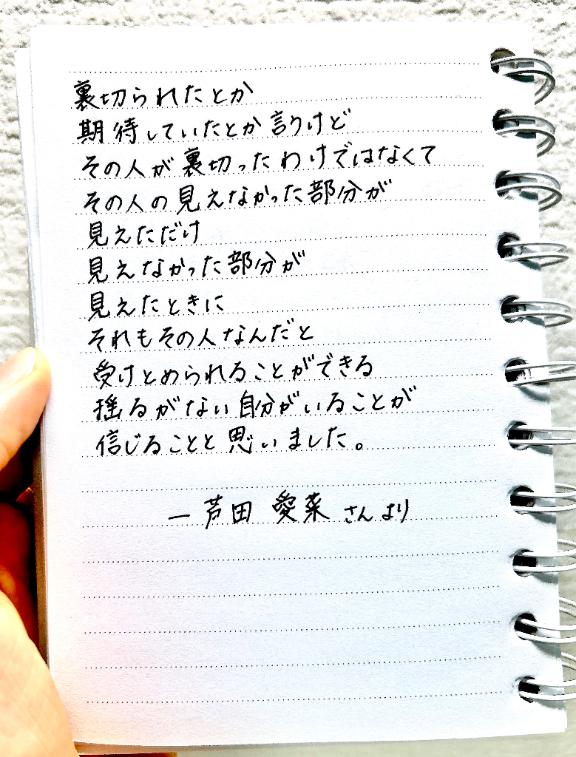 裏切られたとか
期待していたとか言うけど
その人が裏切ったわけではなくて
その人の見えなかった部分が
見えただけ
見えなかった部分が
見えたときに
それもその人なんだと
受けとめられることができる
揺るがない自分がいることが
信じることと思いました。
— 芦田 愛菜 さんより